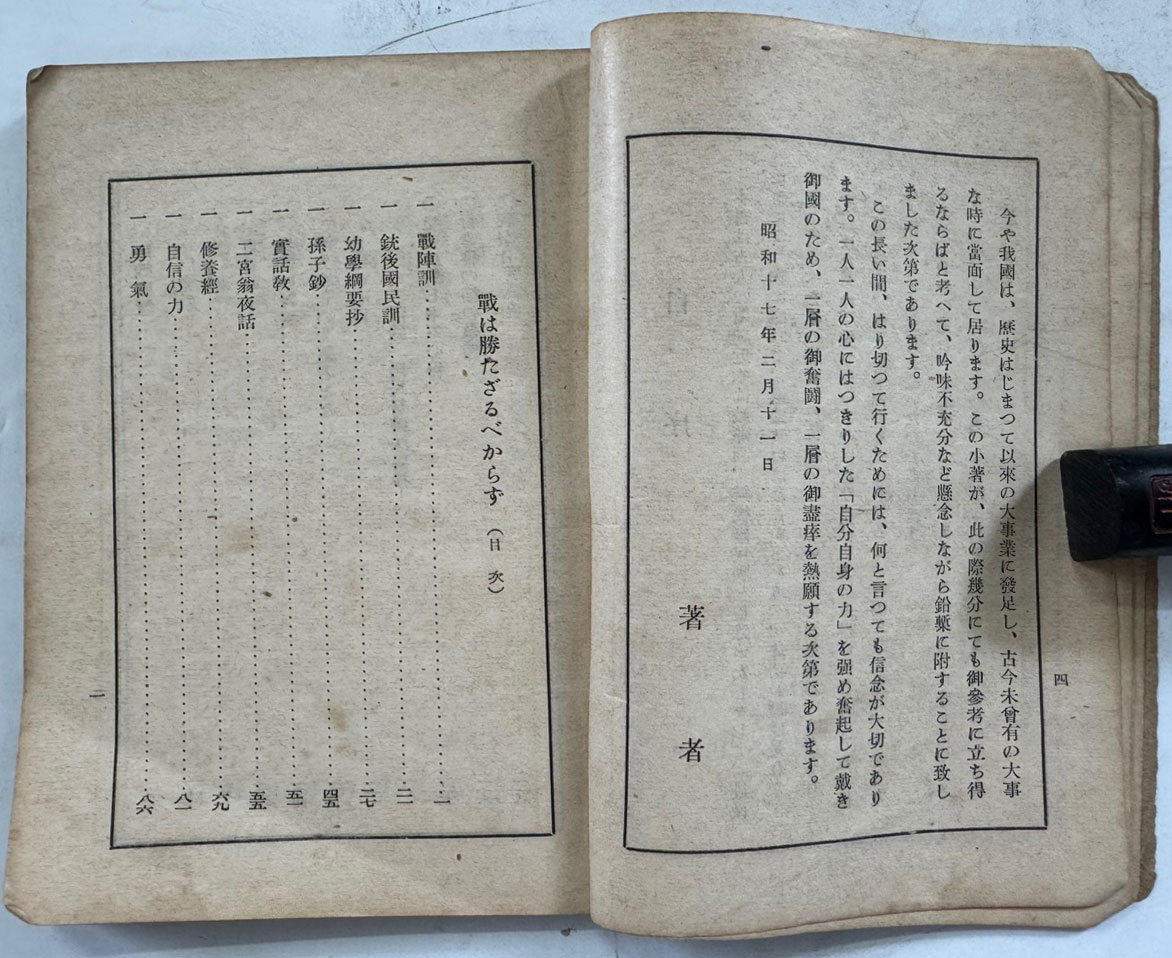 四
今や我國は、歷史はじまつて以來の大事業に發足し、古今未曾有の大事
な時に當面して居ります。この小著が、此の際幾分にても御參考に立ち得
るならばと考へて、吟味不充分など懸念しながら鉛槧に附することに致し
ました次第であります。
この長い間、はり切つて行くためには、何と言つても信念が大切であり
ます。一人一人の心にはつきりした「自分自身の力」を强め奮起して戴き
御國のため、一層の御奮鬪、一層の御盡瘁を熱願する次第であります。
昭和十七年二月十一日
著者
戰は勝たざるべからず（目次）
一 戰陣訓……一
一 銃後國民訓……二一
一 幼學綱要抄……二七
一 孫子鈔……四五
一 實話敎……五一
一 二宮翁夜話……五五
一 修養經……六九
一 自信の力……八一
一 勇氣……八六
一